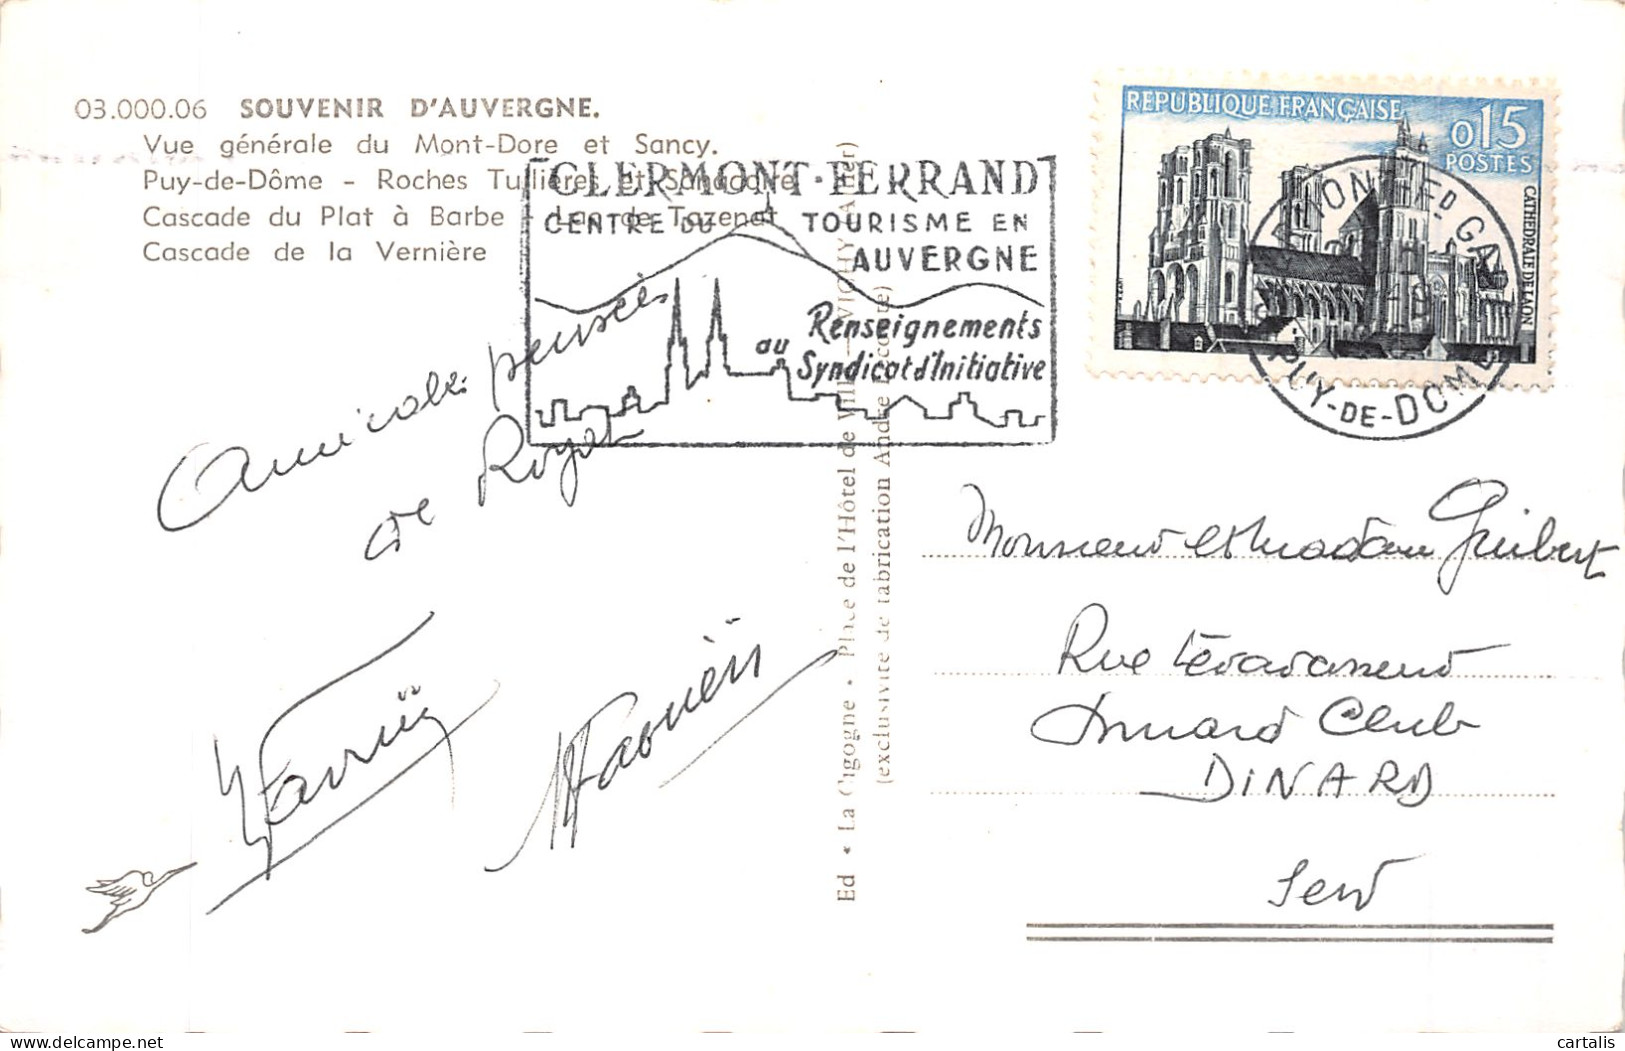 03.000.06 SOUVENIR D'AUVERGNE.
Vue générale du Mont-Dore et Sancy.
Puy-de-Dôme - Roches Tuilière et Sanadoire
Cascade du Plat à Barbe - Lac de Tazenat
Cascade de la Vernière
CLERMONT-FERRAND
CENTRE DU TOURISME EN
AUVERGNE
Renseignements
au Syndicat d'Initiative
REPUBLIQUE FRANÇAISE
0,15
POSTES
CATHEDRALE DE LAON
CLERMONT-FD GARE
PUY-DE-DOME
Amicales pensées
de Royat
Ed « La Cigogne » Place de l'Hôtel de Ville - VICHY (Allier)
(exclusivité de fabrication André Leconte)
Monsieur et Madame Guibert
Rue Levavasseur
Dinard Club
DINARD